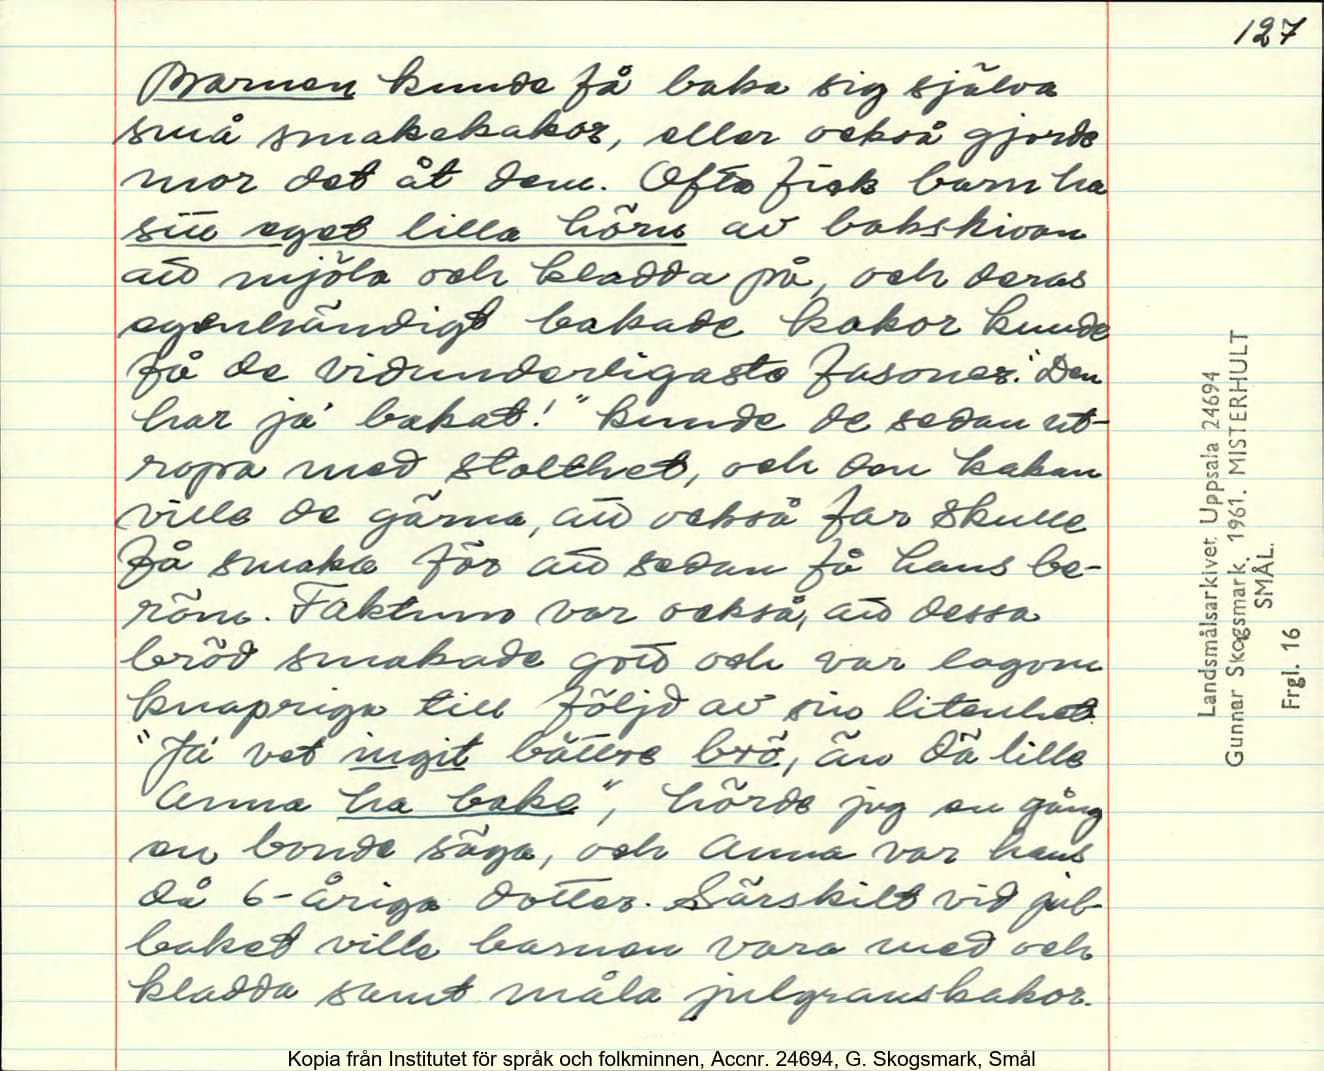 127
Barnen kunde få baka sig själva
små smakekakor, eller också gjorde
mor det åt dem. Ofta fick barn ha
sitt eget lilla hörn av bakskivan
att mjöla och kladda på, och deras
egenhändigt bakade kakor kunde
få de vidunderligaste fasoner. "Den
har ja' bakat!" kunde de sedan ut-
ropa med stolthet, och den kakan
ville de gärna, att också far skulle
få smaka för att sedan få hans be-
röm. Faktum var också, att dessa
bröd smakade gott och var lagom
knapriga till följd av sin litenhet.
"Ja' vet ingit bättre brö, än dä lilla
Anna ha bake", hörde jag en gång
en bonde säga, och Anna var hans
då 6-åriga dotter. Särskilt vid jul-
baket ville barnen vara med och
kladda samt måla julgranskakor.
Landsmålsarkivet Uppsala 24694
Gunnar Skogsmark. 1961. MISTERHULT
SMÅL.
Frgl. 16
Kopia från Institutet för språk och folkminnen, Accnr. 24694, G. Skogsmark, Smål